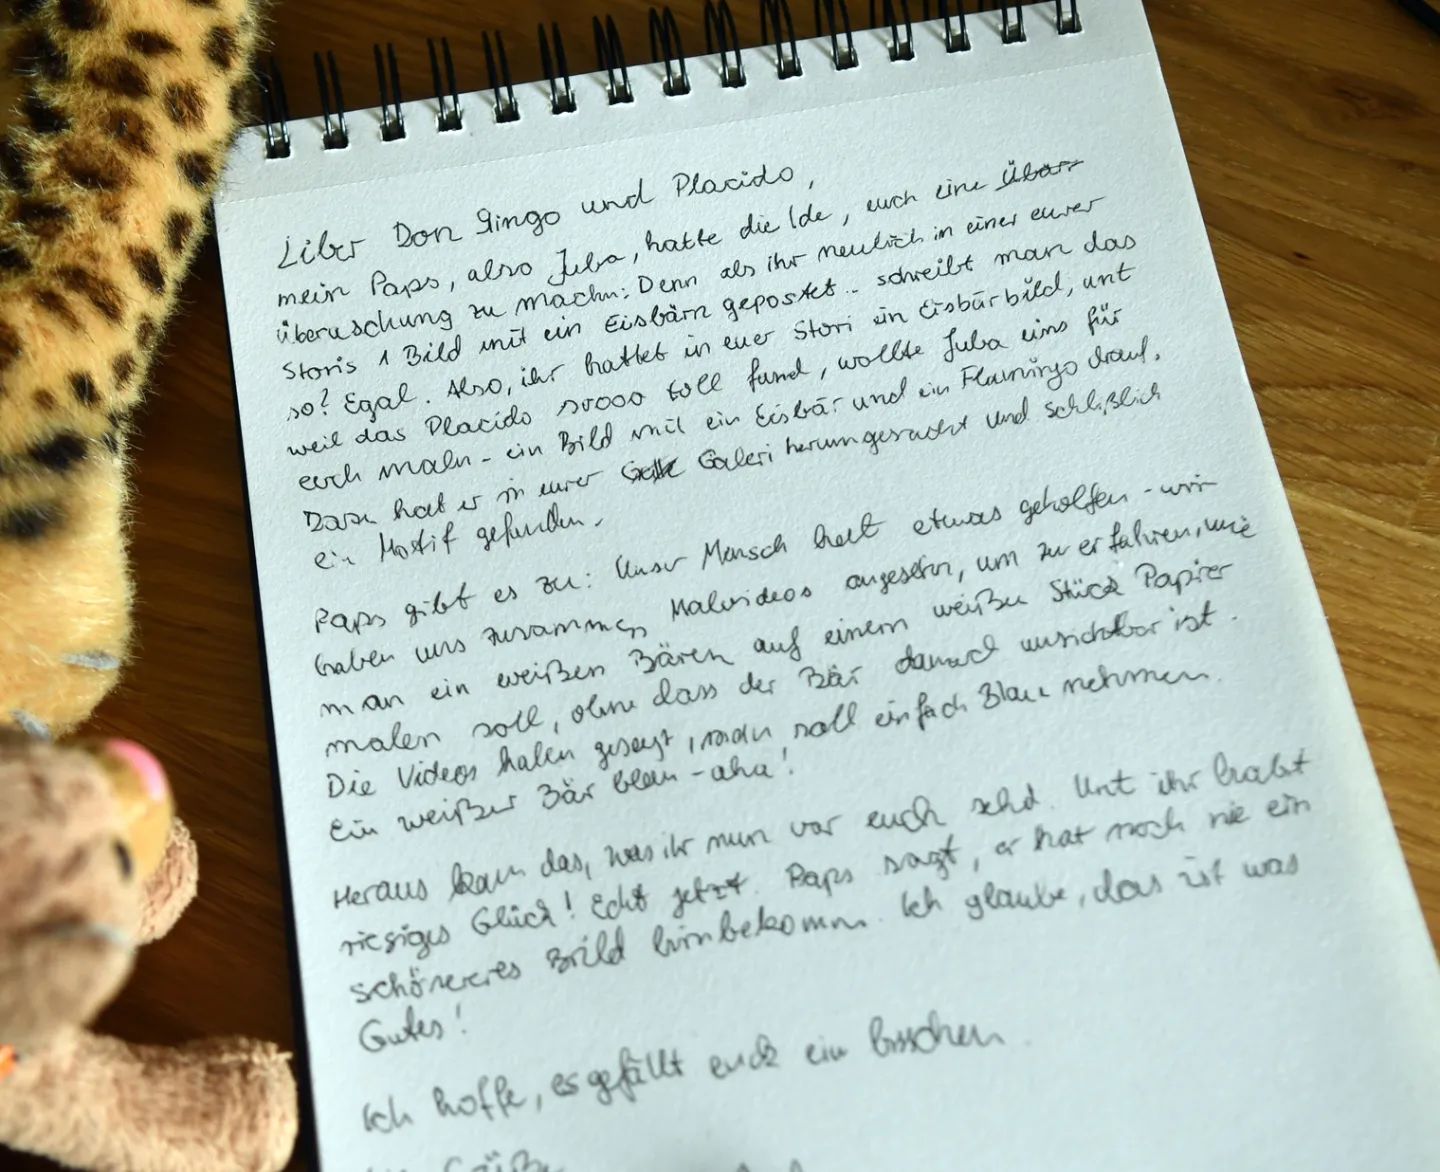 Liber Don Gingo und Placido,
mein Paps, also Juba, hatte die Ide, euch eine Übarr
überuschung zu machn: Denn als ihr neulich in einer eurer
Storis 1 Bild mit ein Eisbärn gepostet.. schreibt man das
so? Egal. Also, ihr hattet in euer Stori ein Eisbärbild, unt
weil das Placido soooo toll fand, wollte Juba eins für
euch maln - ein Bild mit ein Eisbär und ein Flamingo drauf.
Dazu hat er in eurer Galeri herumgesucht und schlißlich
ein Motif gefunden.
Paps gibt es zu: Unser Mensch hat etwas geholfen - wir
haben uns zusammen Malvideos angesehn, um zu erfahren, wie
man ein weißen Bären auf einem weißen Stück Papier
malen soll, ohne dass der Bär danach unsichtbar ist.
Die Videos haben gesagt, man soll einfach Blau nehmen.
Ein weißer Bär blau - aha!
Heraus kam das, was ihr nun vor euch sehd. Unt ihr habt
riesiges Glück! Echt jetzt. Paps sagt, er hat noch nie ein
schöneres Bild hinbekomm. Ich glaube, das ist was
Gutes!
Ich hoffe, es gefällt euch ein bisschen.
Grüße